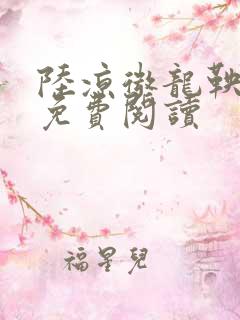 陸涼徹龍鞅
免費閱讀
福星兒